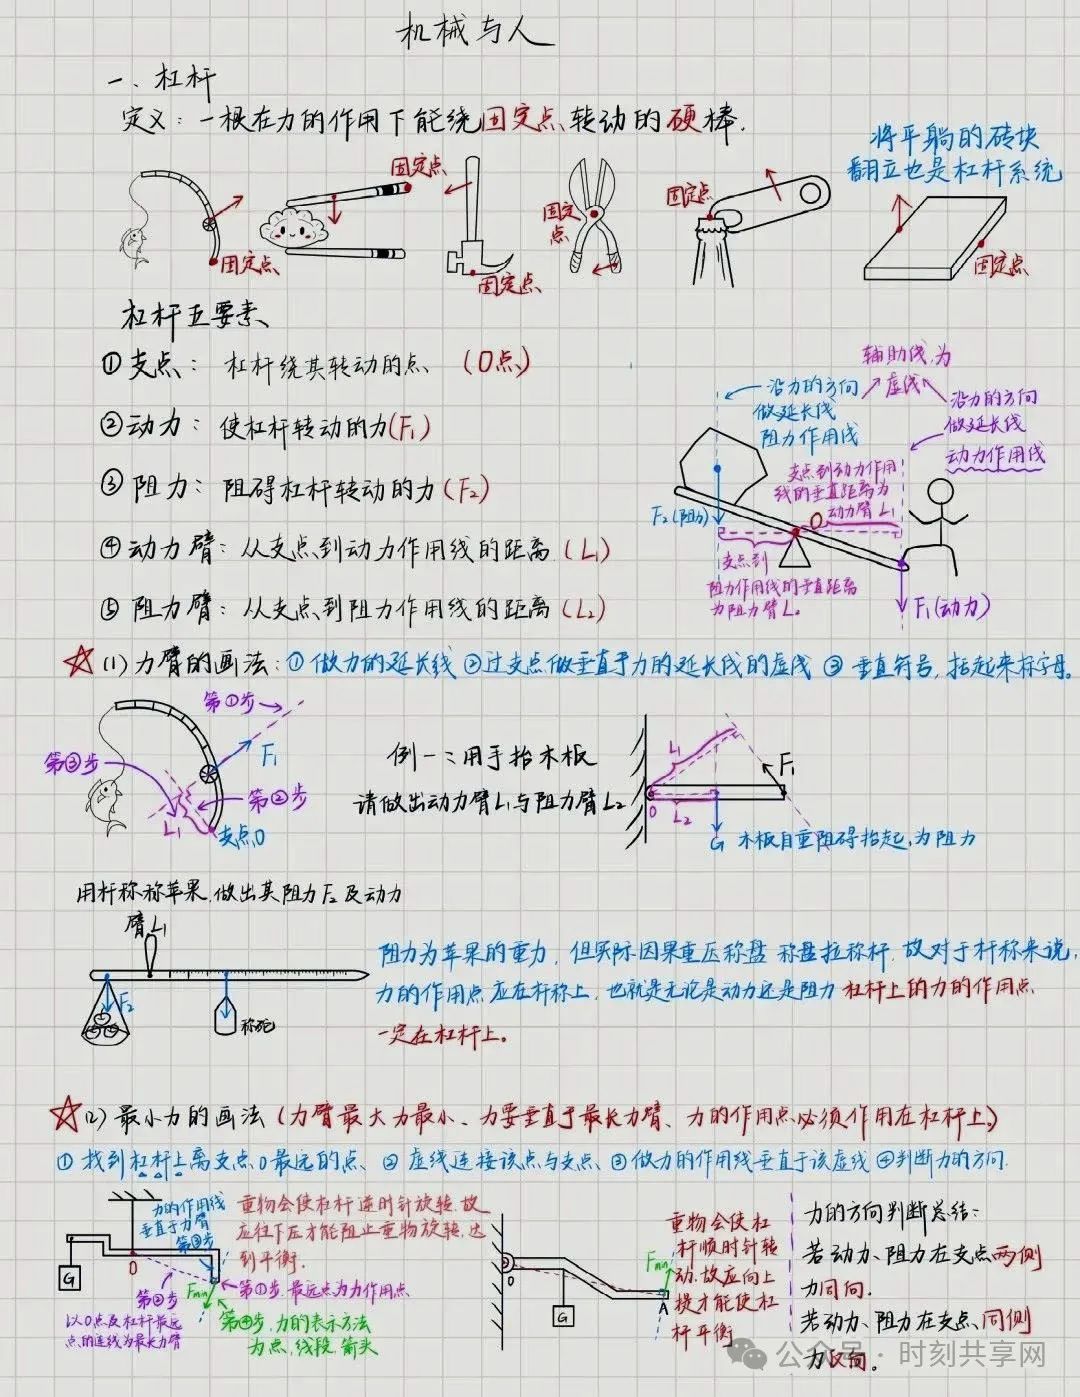 机械与人
一、杠杆
定义：一根在力的作用下能绕固定点转动的硬棒.
将平躺的砖块
翻立也是杠杆系统
固定点
固定点
固定点
固定
点
固定点
固定点
杠杆五要素、
①支点：杠杆绕其转动的点、（O点）
②动力：使杠杆转动的力(F₁)
③阻力：阻碍杠杆转动的力(F₂)
④动力臂：从支点到动力作用线的距离(L₁)
⑤阻力臂：从支点到阻力作用线的距离(L₂)
辅助线、为
虚线
沿力的方向
做延长线
阻力作用线
沿力的方向
做延长线
动力作用线
支点到动力作用
线的垂直距离为
动力臂L₁
F₂(阻力)
O
支点到
阻力作用线的垂直距离
为阻力臂L₂
F₁(动力)
☆(1)力臂的画法：①做力的延长线 ②过支点做垂直于力的延长线的虚线 ③垂直符号，括起来标字母。
第①步
F₁
第③步
第②步
L₁
支点O
例一：用手抬木板
请做出动力臂L₁与阻力臂L₂
L₁
F₁
O
L₂
G 木板自重阻碍抬起，为阻力
用杆称称苹果，做出其阻力F₂及动力
臂L₁
F₂
称砣
阻力为苹果的重力，但实际因果重压称盘 称盘拉称杆，故对于杆称来说，
力的作用点应在杆称上，也就是无论是动力还是阻力 杠杆上的力的作用点
一定在杠杆上。
☆(2)最小力的画法（力臂最大力最小、力要垂直于最长力臂、力的作用点必须作用在杠杆上）
①找到杠杆上离支点O最远的点、②虚线连接该点与支点、③做力的作用线垂直于该虚线 ④判断力的方向.
力的作用线
垂直于力臂
第③步
重物会使杠杆逆时针旋转，故
应往下压才能阻止重物旋转，达
到平衡.
G
O
第②步
以O点及杠杆最远
点的连线为最长力臂
Fmin
第①步.最远点为力作用点
第④步.力的表示方法
为点，线段，箭头
O
G
Fmin
A
重物会使杠
杆顺时针转
动，故应向上
提才能使杠
杆平衡
力的方向判断总结：
若动力、阻力在支点两侧
力同向.
若动力、阻力在支点同侧
力反向。
公众号·时刻共享网